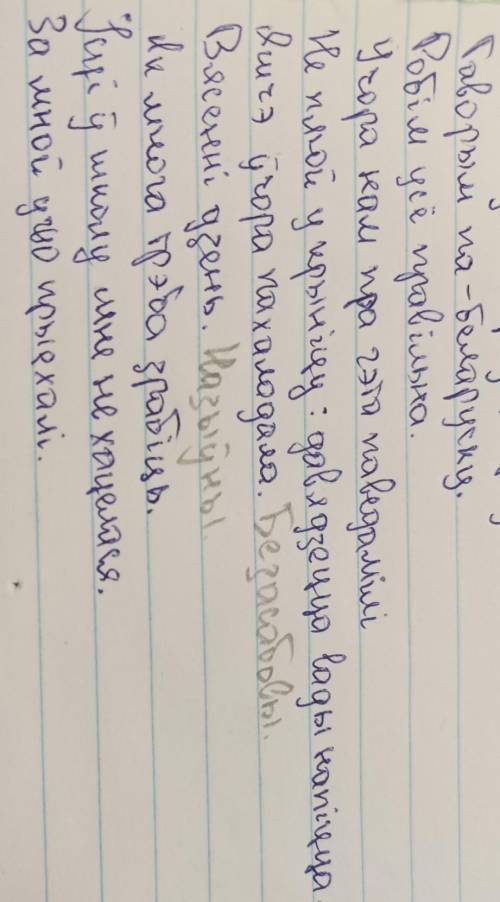 Гаворым па-беларуску.
Робім усё правільна.
Учора нам пра гэта паведамілі
Не плюй у крыніцу: давядзецца вады напіцца.
Яшчэ ўчора пахаладала. Безасабовы.
Вясенні дзень. Назыўны.
Як многа трэба зрабіць.
Ісці ў школу мне не хацелася.
За мной ужо прыехалі.